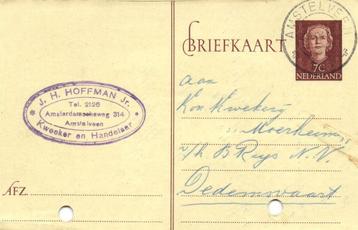 J. H. HOFFMAN Jr.
Tel. 2126
Amsterdamscheweg 314
Amstelveen
Kweeker en Handelaar
AFZ.
BRIEFKAART
AMSTELVEEN
7c
NEDERLAND
aan
Kon. Kweekerij
Moerheim
v/h B Ruys N.V.
Dedemsvaart